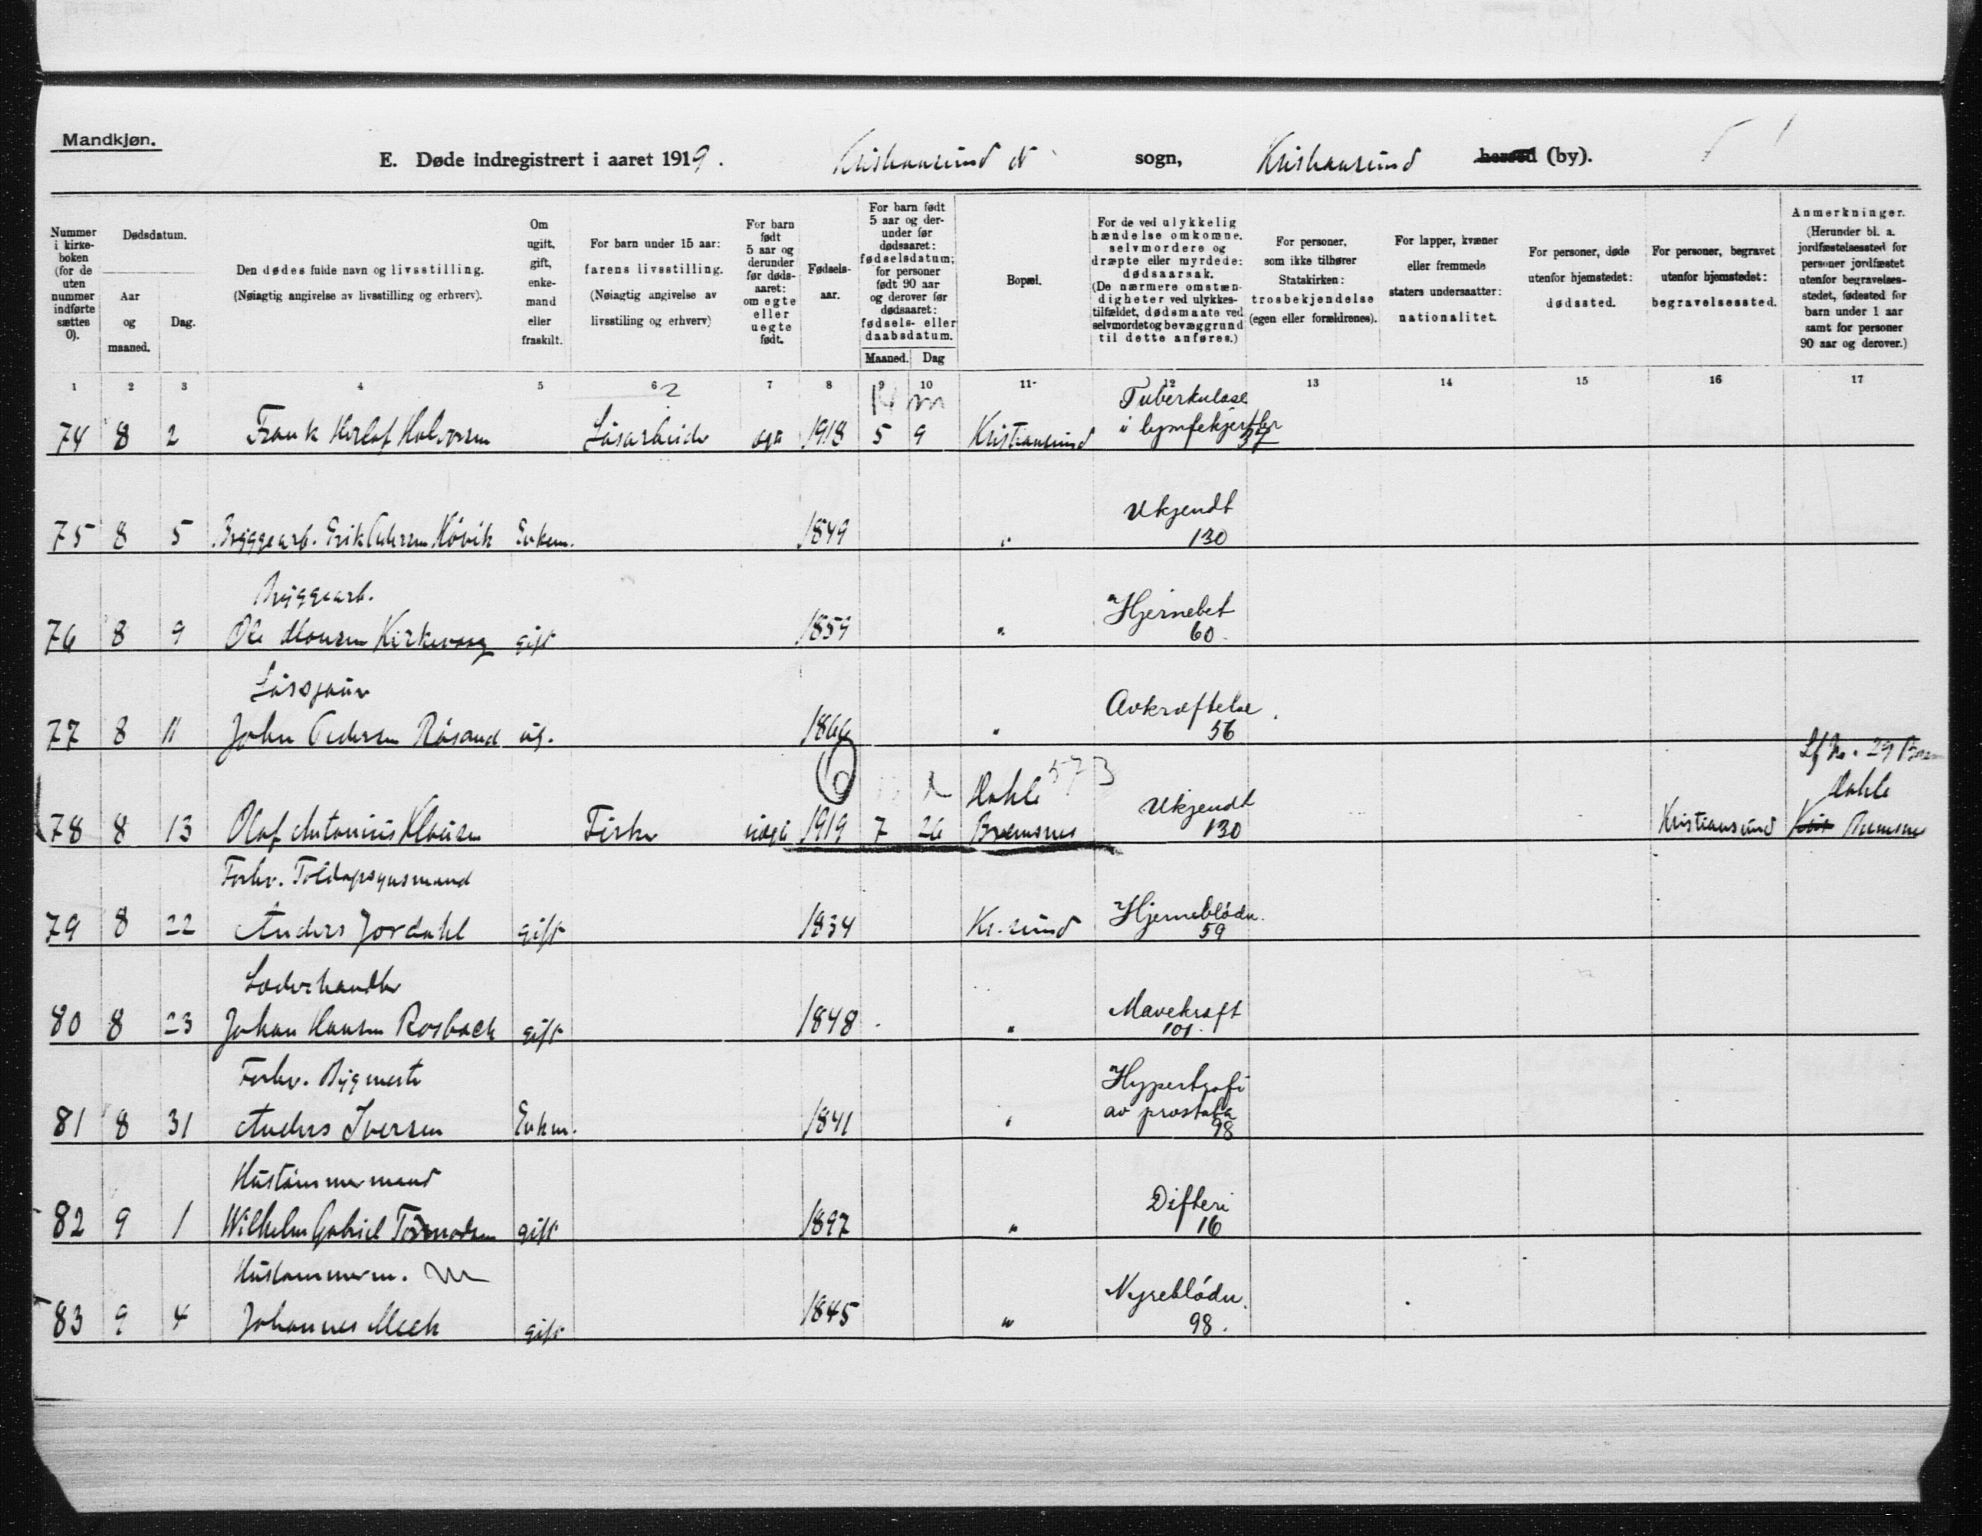 Mandkjøn.
E. Døde indregistrert i aaret 1919. Kristiansund N sogn, Kristiansund herred (by).
Nummer i kirkeboken (for de uten nummer indførte sættes 0).
Dødsdatum.
Aar og maaned.
Dag.
Den dødes fulde navn og livsstilling.
(Nøiagtig angivelse av livsstilling og erhverv).
Om ugift, gift, enkemand eller fraskilt.
For barn under 15 aar: farens livsstilling.
(Nøiagtig angivelse av livsstiling og erhverv)
For barn født 5 aar og derunder før dødsaaret: om egte eller uegte født.
Fødselsaar.
For barn født 5 aar og derunder før dødsaaret: fødselsdatum; for personer født 90 aar og derover før dødsaaret: fødsels- eller daabsdatum.
Maaned. Dag
Bopæl.
For de ved ulykkelig hændelse omkomne, selvmordere og dræpte eller myrdede: dødsaarsak.
(De nærmere omstændigheter ved ulykkestilfældet, dødsmaate ved selvmordet og bevæggrund til dette anføres.)
For personer, som ikke tilhører Statskirken: trosbekjendelse (egen eller forældrenes).
For lapper, kvæner eller fremmede staters undersaatter: nationalitet.
For personer, døde utenfor hjemstedet: dødssted.
For personer, begravet utenfor hjemstedet: begravelsessted.
Anmerkninger.
(Herunder bl. a. jordfæstelsessted for personer jordfæstet utenfor begravelsesstedet, fødested for barn under 1 aar samt for personer 90 aar og derover.)
1 2 3 4 5 6 7 8 9 10 11 12 13 14 15 16 17
2 Tuberkulose
74 8 2 Frank Herlof Halvorsen Løsarbeider egte 1918 5 9 Kristiansund i lymfekjertler
37
Ukjendt
75 8 5 Bryggearb. Erik Pedersen Høvik Enkem. 1849 " 130
Bryggearb. Hjernebet
76 8 9 Ole Monsen Kirkevaag gift 1859 " 60
Løsgjæn Avkræftelse
77 8 11 John Pedersen Røsand ug. 1866 " 56
Lf No. 29
6 Dahle 573 Ukjendt Dahle
78 8 13 Olaf Antonius Klausen Fisker uegte 1919 7 26 Bremsnes 130 Kristiansund Bremsnes
Forhv. Toldopsynsmand Hjerneblødn.
79 8 22 Anders Jordahl gift 1834 Kr.sund 59
Læderhandler Mavekræft
80 8 23 Johan Hansen Rosbach gift 1848 " 101
Forhv. Bygmester Hypertrofi
av prostata
81 8 31 Anders Iversen Enkm. 1841 " 98
Hustømmermand Difteri
82 9 1 Wilhelm Gabriel Tormodsen gift 1897 " 16
Hustømmerm. Nyreblødn.
83 9 4 Johannes Meek gift 1845 " 98.